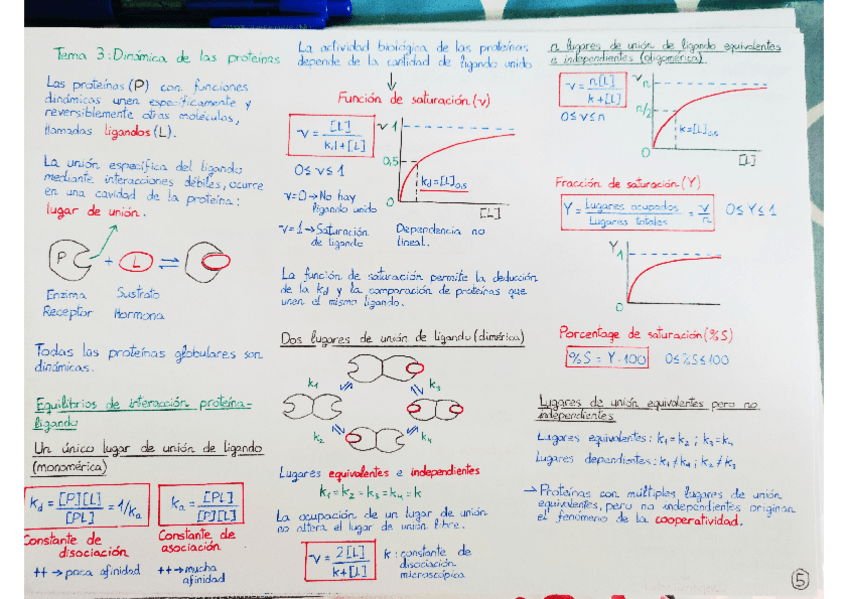 Tema 3: Dinámica de las proteínas
Las proteínas (P) con funciones
dinámicas unen específicamente y
reversiblemente otras moléculas,
llamadas ligandos (L).
La unión específica del ligando
mediante interacciones débiles, ocurre
en una cavidad de la proteína:
lugar de unión.
P + L ⇌
Enzima Sustrato
Receptor Hormona
Todas las proteínas globulares son
dinámicas.
Equilibrios de interacción proteína-
ligando
Un único lugar de unión de ligando
(monomérica)
kd = [P][L] / [PL] = 1/ka
ka = [PL] / [P][L]
Constante de disociación
++ → poca afinidad
Constante de asociación
++ → mucha afinidad
La actividad biológica de las proteínas
depende de la cantidad de ligando unido
↓
Función de saturación (v)
v = [L] / kd + [L]
0 ≤ v ≤ 1
v = 0 → No hay
ligando unido
v = 1 → Saturación
de ligando
v 1
0,5
kd = [L]0,5
0
[L]
Dependencia no
lineal.
La función de saturación permite la deducción
de la kd y la comparación de proteínas que
unen el mismo ligando.
Dos lugares de unión de ligando (dimérica)
k1 k3
k2 k4
Lugares equivalentes e independientes
k1 = k2 = k3 = k4 = k
La ocupación de un lugar de unión
no altera el lugar de unión libre.
v = 2[L] / k + [L]
k: constante de
disociación
microscópica
n lugares de unión de ligando equivalentes
e independientes (oligomérica)
v = n[L] / k + [L]
0 ≤ v ≤ n
v
n
n/2
k = [L]0,5
0
[L]
Fracción de saturación (Y)
Y = Lugares ocupados / Lugares totales = v / n
0 ≤ Y ≤ 1
Y
1
0
Porcentage de saturación (% S)
% S = Y · 100
0 ≤ % S ≤ 100
Lugares de unión equivalentes pero no
independientes
Lugares equivalentes: k1 = k2 ; k3 = k4
Lugares dependientes: k1 ≠ k4 ; k2 ≠ k3
→ Proteínas con múltiples lugares de unión
equivalentes, pero no independientes originan
el fenómeno de la cooperatividad.
5